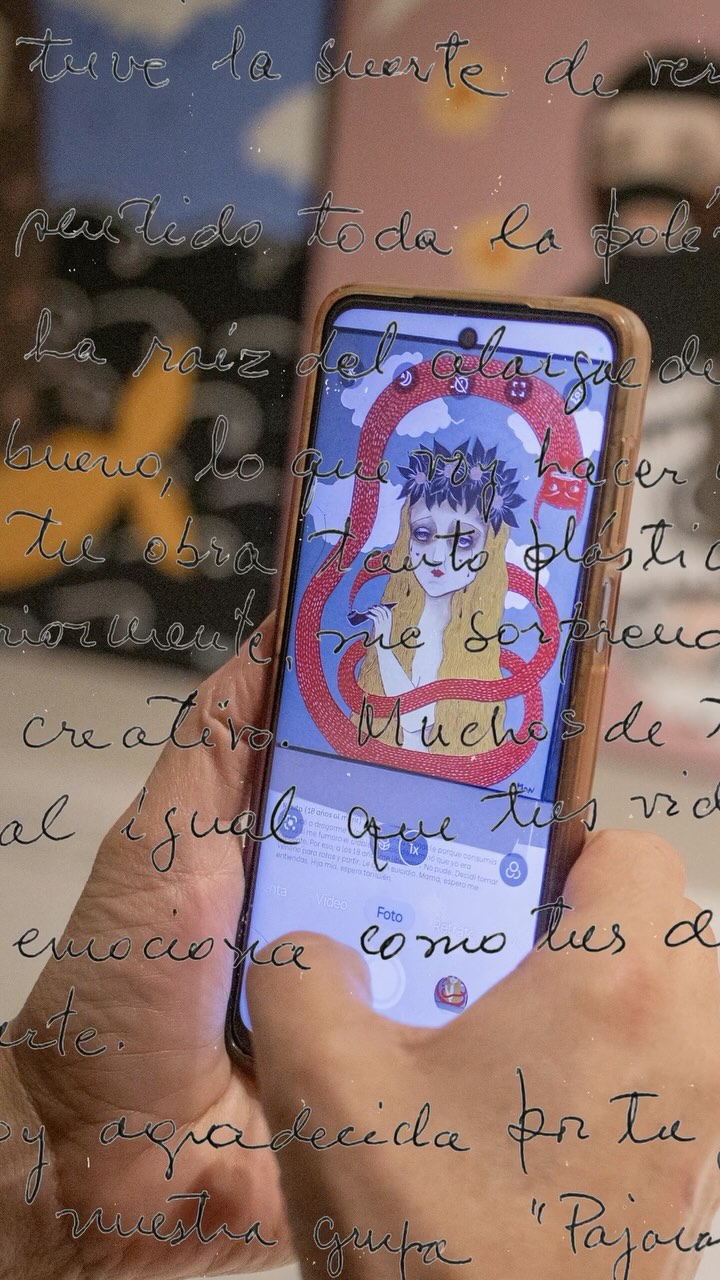 tuve la suerte de ver
sentido toda la polé
ha raíz del alargue de
bueno, lo que voy hacer
tu obra tanto plástic
riormente, me sorprend
creativo. Muchos de
al igual que tus vid
1x
Video
Foto
emociona como tus d
erte.
oy agradecida por tu
nuestra grupa "Pajara